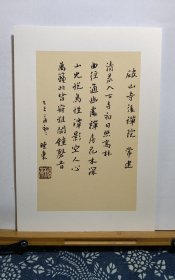 破山寺後禪院 常建
清晨入古寺初日照高林
曲徑通幽處禪房花木深
山光悅鳥性潭影空人心
萬籟此皆寂惟聞鐘磬音